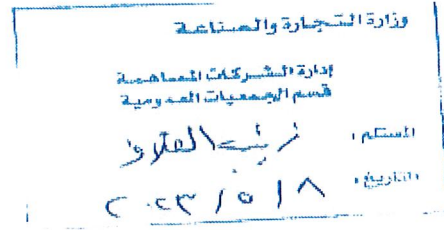 وزارة التجارة والصناعة
إدارة الشركات المساهمة
قسم الجمعيات العمومية
المستلم : زينب
التاريخ : ٢٠٢٣ / ٥ / ٨